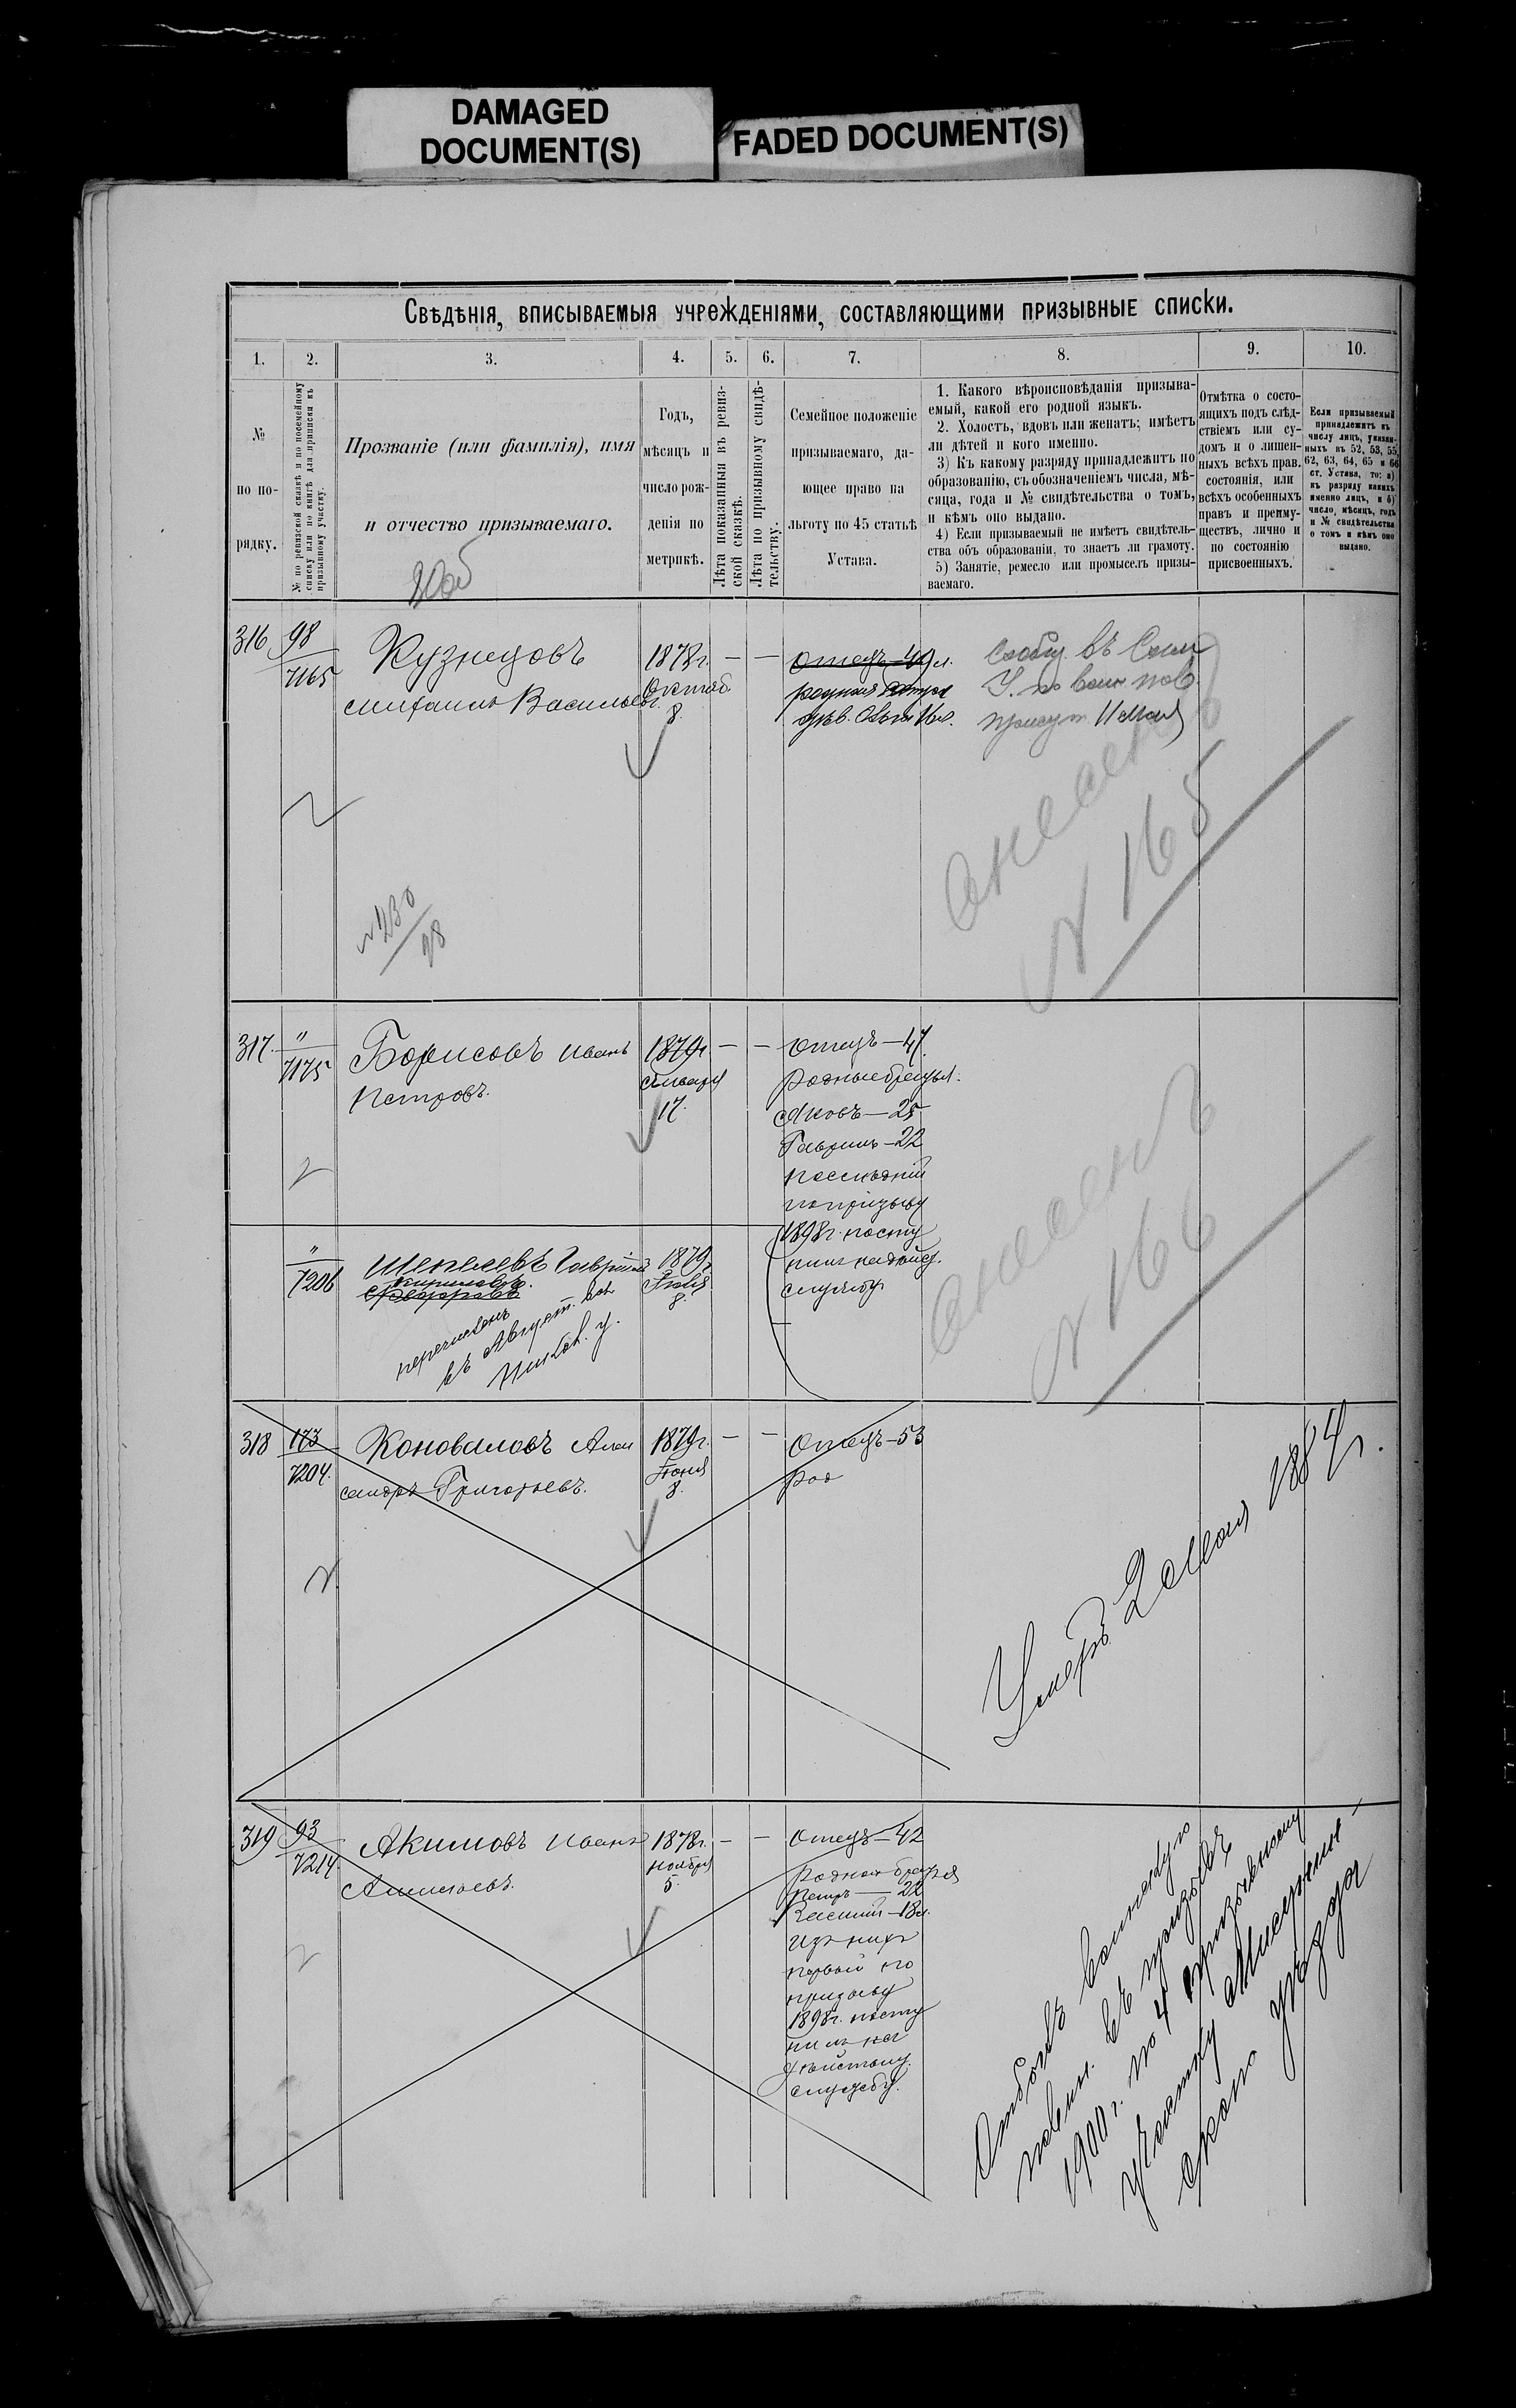 DAMAGED
DOCUMENT(S)
FADED DOCUMENT(S)
Свѣдѣнія, вписываемыя учрежденіями, составляющими призывные списки.
1. 2. 3. 4. 5. 6. 7. 8. 9. 10.
№
по по-
рядку.
№ по ревизской сказкѣ и по посемейному
списку или по книгѣ для приписки къ
призывному участку.
Прозваніе (или фамилія), имя
и отчество призываемаго.
Годъ,
мѣсяцъ и
число рож-
денія по
метрикѣ.
Лѣта показанныя въ ревиз-
ской сказкѣ.
Лѣта по призывному свидѣ-
тельству.
Семейное положеніе
призываемаго, да-
ющее право на
льготу по 45 статьѣ
Устава.
1. Какого вѣроисповѣданія призыва-
емый, какой его родной языкъ.
2. Холостъ, вдовъ или женатъ; имѣетъ
ли дѣтей и кого именно.
3) Къ какому разряду принадлежитъ по
образованію, съ обозначеніемъ числа, мѣ-
сяца, года и № свидѣтельства о томъ,
и кѣмъ оно выдано.
4) Если призываемый не имѣетъ свидѣтель-
ства объ образованіи, то знаетъ ли грамоту.
5) Занятіе, ремесло или промыселъ призы-
ваемаго.
Отмѣтка о состо-
ящихъ подъ слѣд-
ствіемъ или су-
домъ и о лишен-
ныхъ всѣхъ прав.
состоянія, или
всѣхъ особенныхъ
правъ и преиму-
ществъ, лично и
по состоянію
присвоенныхъ.
Если призываемый
принадлежитъ къ
числу лицъ, указан-
ныхъ въ 52, 53, 55,
62, 63, 64, 65 и 66
ст. Устава, то: а)
къ разряду какихъ
именно лицъ, и б)
число, мѣсяцъ, годъ
и № свидѣтельства
о томъ и кѣмъ оно
выдано.
316 98
7165
Кузнецовъ
Михаилъ Васильевъ
1878г.
Октяб.
8.
— —
Отецъ—49л.
родная
№ 230
98
№ 165
317. "
7175
Борисовъ Иванъ
Петровъ.
1879г.
Января
17.
— —
Отецъ—47.
Родные братья.
Яковъ—25
Гаврилъ—22
Послѣдній
по призыву
1898г. посту
пилъ на дѣйс.
службу
№ 166
"
7206
Гаврiилъ
1879г.
8.
перечисленъ
въ Август.
318 173
7204.
Коноваловъ Алек
сандръ Григорьевъ.
1879г.
Іюня
8.
— —
Отецъ—53
Род
Умеръ 2 Мая 1884г.
319 93
7214.
Акимовъ Иванъ
1878г.
Ноября
5.
— —
Отецъ—42
Родные братья
Петръ—22
Василій—18л.
Изъ нихъ
первый по
призыву
1898г. посту
пилъ на
дѣйствит.
службу.
Отбылъ воинскую
повин. въ призывѣ
1900г. по 4 призывному
участку
уѣзда